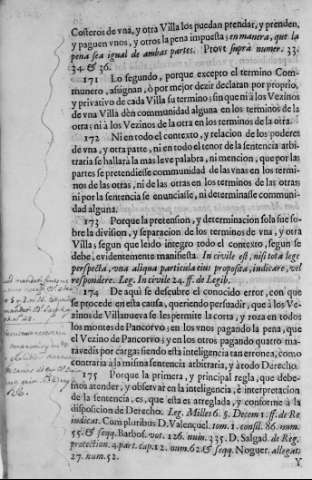 Costeros de vna, y otra Villa los puedan prendar, y prenden,
y paguen vnos, y otros la pena impuesta; en manera, que la
pena sea igual de ambas partes. Prove suprà numer. 33.
34. & 36.
171 Lo segundo, porque excepto el termino Com-
munero, assignan, ò por mejor dezir declaran por proprio,
y privativo de cada Villa su termino; sin que ni à los Vezinos
de vna Villa dèn communidad alguna en los terminos de la
otra; ni à los Vezinos de la otra en los terminos de la otra.
172 Ni en todo el contexto, y relacion de los poderes
de vna, y otra parte, ni en todo el tenor de la sentencia arbi-
traria se hallarà la mas leve palabra, ni mencion, que por las
partes se pretendiesse communidad de las vnas en los termi-
nos de las otras, ni de las otras en los terminos de las otras;
ni por la sentencia se enunciasse, ni determinasse communi-
dad alguna.
173 Porque la pretension, y determinación sola fue so-
bre la division, y separacion de los terminos de vna, y otra
Villa; segun que leido integro todo el contexto, segun se
debe, evidentemente manifiesta. In civile est, nisi tota lege
perspecta, vna aliqua particula eius proposita, iudicare, vel
respondere. Leg. In civile 24. ff. de Legib.
174 De aqui se descubre el conocido error, con que
se procede en esta causa, queriendo persuadir, que à los Ve-
zinos de Villanueva se les permite la corta, y roza en todos
los montes de Pancorvo; en los vnos pagando la pena, que
el Vezino de Pancorvo; y en los otros pagando quatro ma-
ravedis por cargas; siendo esta inteligencia tan erronea, como
contraria à la misma sentencia arbitraria, y à todo Derecho.
175 Porque la primera, y principal regla, que debe-
mos atender, y observar en la inteligencia, è interpretacion
de la sentencia, es, que esta es arreglada, y conforme à la
disposicion de Derecho. Leg. Milles 6. §. Decem 1. ff. de Re
iudicat. Cum pluribus D. Valençuel. tom. 1. consil. 86. num.
55. & seqq. Barbos. vot. 126. num. 335. D. Salgad. de Reg.
protection. 4. part. cap. 12. num. 62. & seqq. Noguer. allegat.
27. num. 52.
Y